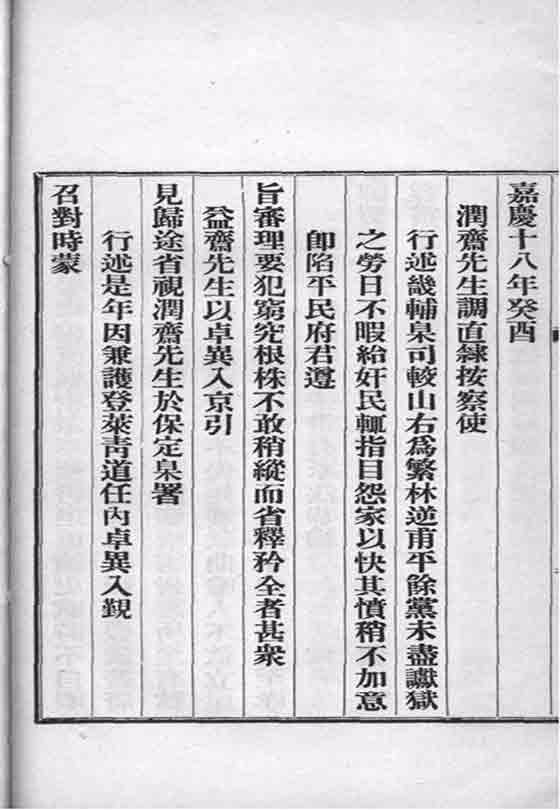 嘉慶十八年癸酉
潤齋先生調直隸按察使
行述畿輔臬司較山右爲繁林逆甫平餘黨未盡讞獄
之勞日不暇給奸民輒指目怨家以快其憤稍不加意
卽陷平民府君遵
旨審理要犯窮究根株不敢稍縱而省釋矜全者甚衆
益齋先生以卓異入京引
見歸途省視潤齋先生於保定臬署
行述是年因兼護登萊靑道任內卓異入覲
召對時蒙